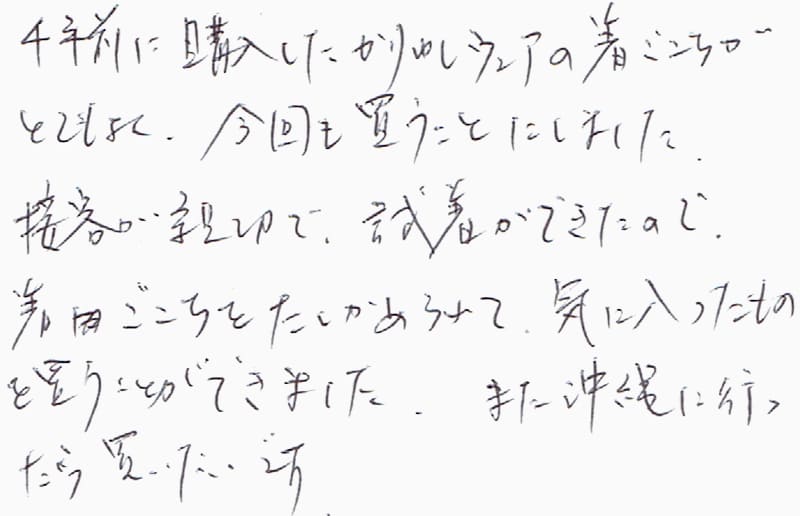 4年前に購入したかりゆしウェアの着ごこちが
とてもよく、今回も買うことにしました。
接客が親切で、試着ができたので、
着ごこちをたしかめられて、気に入ったもの
を買うことができました。また沖縄に行っ
たら買いたいです